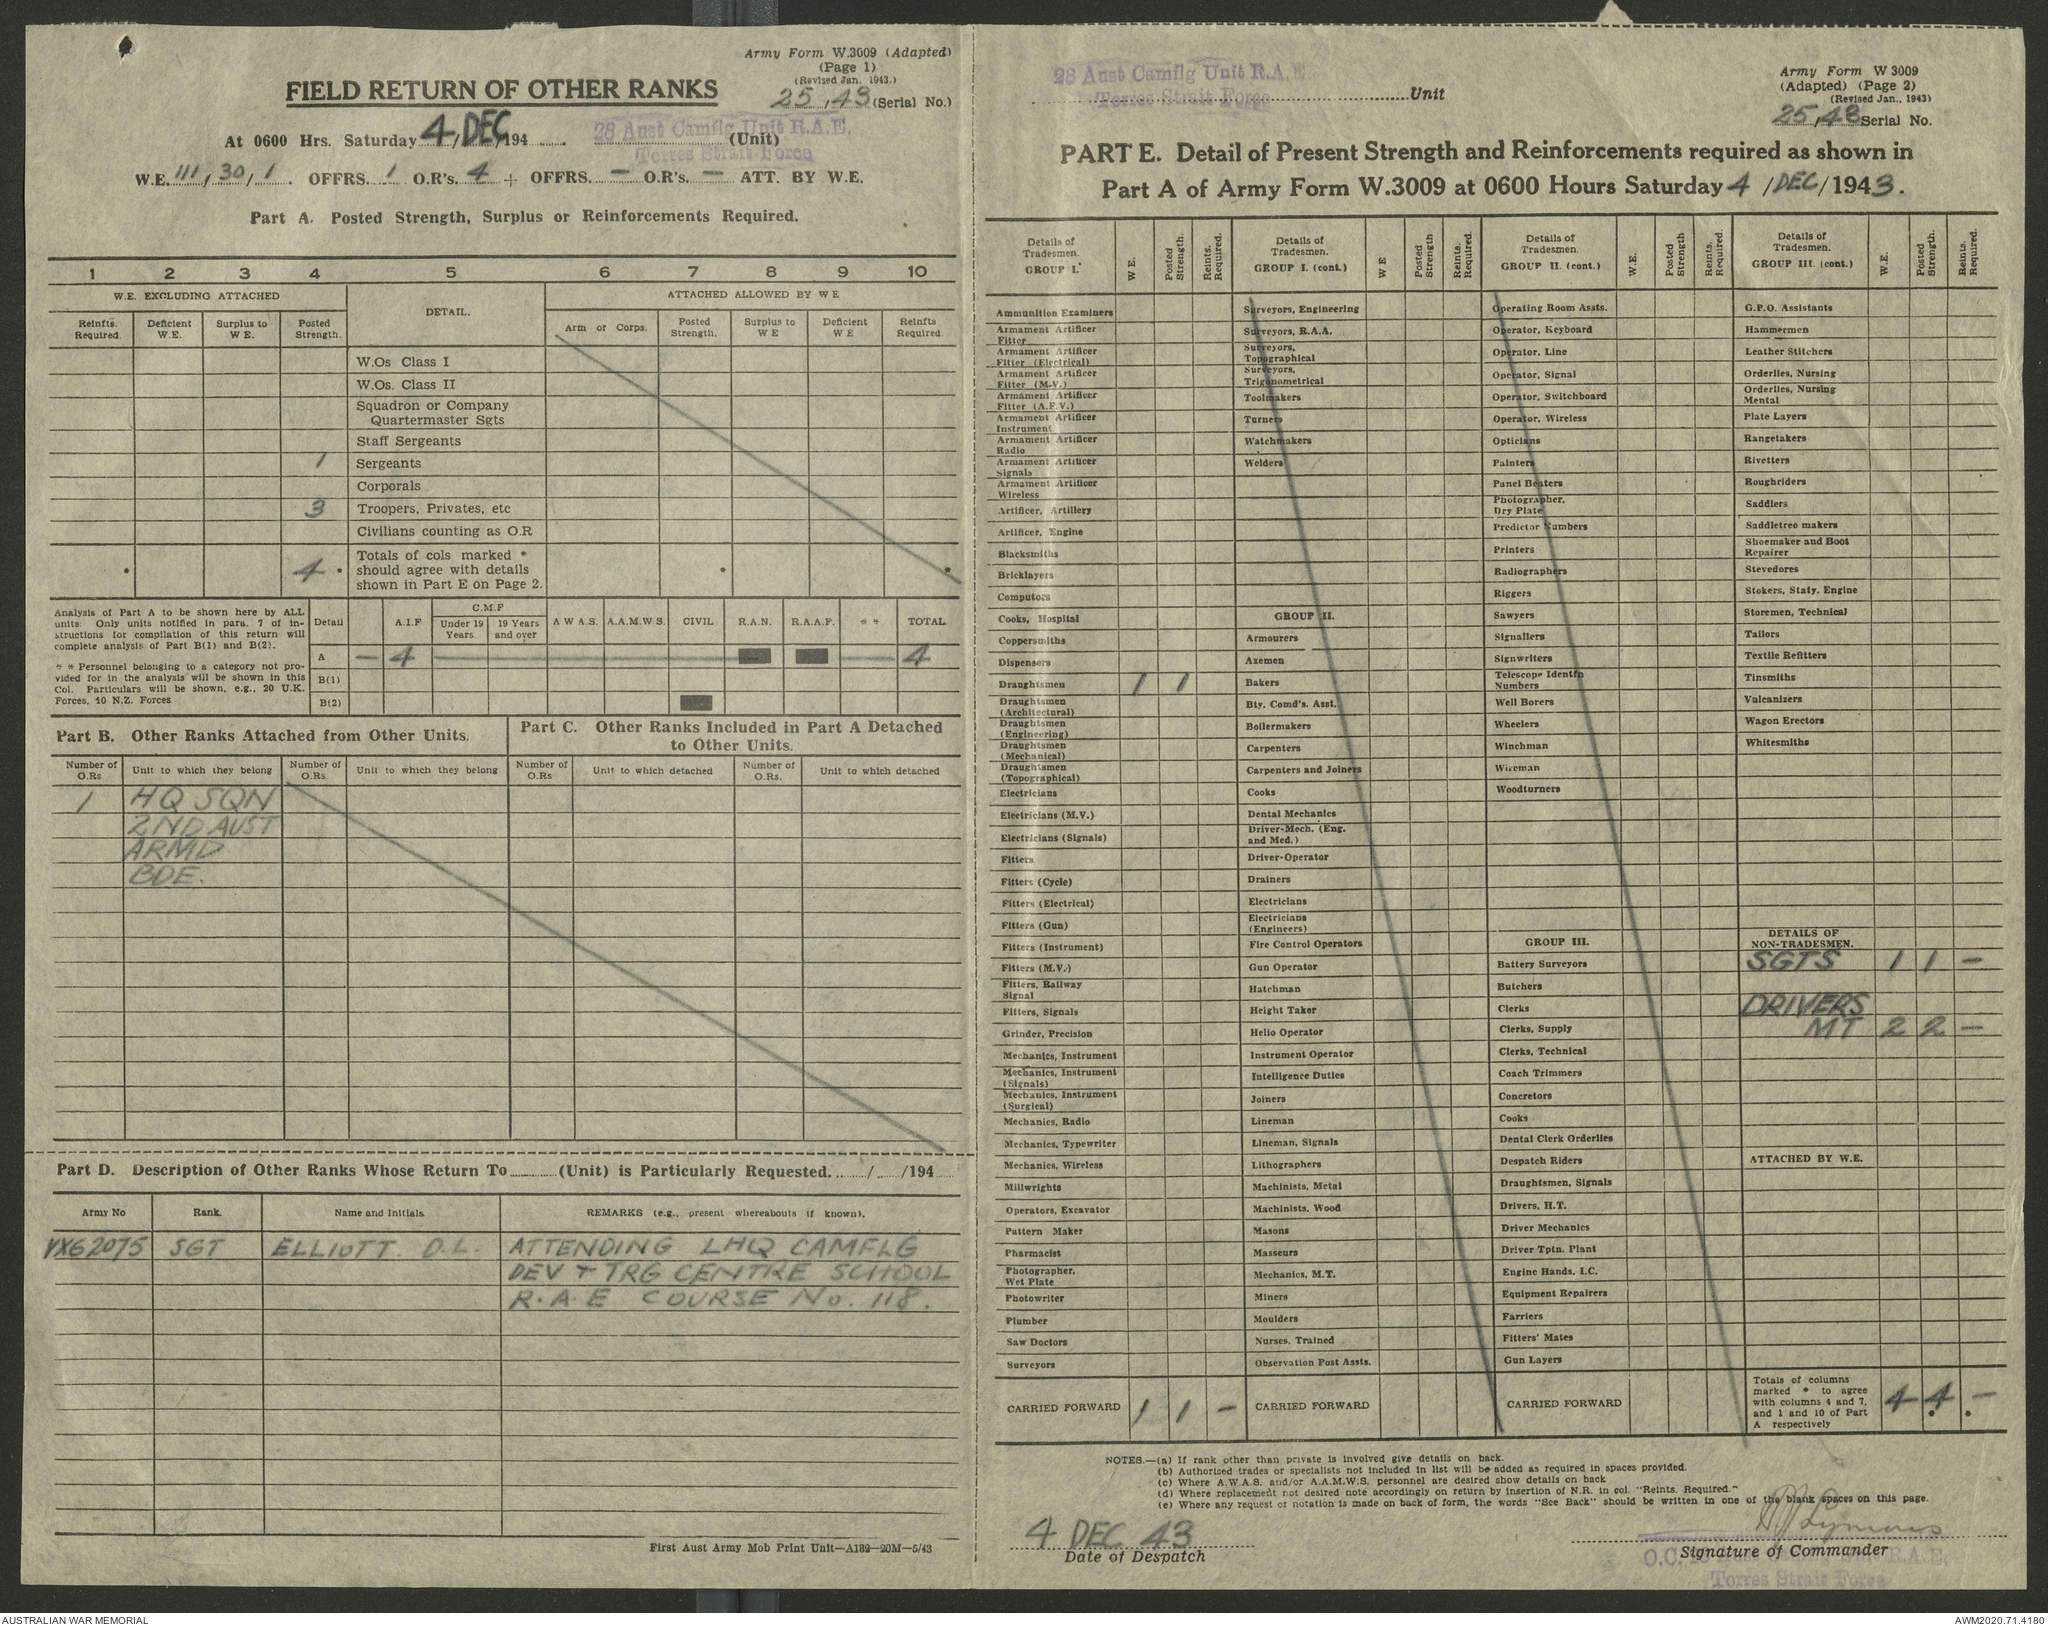 Army Form W.3009 (Adapted)
(Page 1)
(Revised Jan. 1943.)
FIELD RETURN OF OTHER RANKS
25,43 (Serial No.)
At 0600 Hrs. Saturday 4/DEC/194 28 Aust Camflg Unit R.A.E. (Unit)
Torres Strait Force
W.E. 111, 30/1. OFFRS. 1 O.R's. 4 + OFFRS. — O.R's. — ATT. BY W.E.
Part A. Posted Strength, Surplus or Reinforcements Required.
1 2 3 4 5 6 7 8 9 10
W.E. EXCLUDING ATTACHED DETAIL. ATTACHED ALLOWED BY W E
Reinfts. Required. Deficient W.E. Surplus to W E. Posted Strength. Arm or Corps. Posted Strength. Surplus to W E Deficient W E Reinfts Required.
W.Os Class I
W.Os. Class II
Squadron or Company
Quartermaster Sgts
Staff Sergeants
1 Sergeants
Corporals
3 Troopers, Privates, etc
Civilians counting as O.R
Totals of cols marked *
• 4 • should agree with details • •
shown in Part E on Page 2.
Analysis of Part A to be shown here by ALL
units. Only units notified in para. 7 of in-
structions for compilation of this return will
complete analysis of Part B(1) and B(2).
* * Personnel belonging to a category not pro-
vided for in the analysis will be shown in this
Col. Particulars will be shown, e.g., 20 U.K.
Forces, 10 N.Z. Forces
Detail A.I.F C.M.F Under 19 Years. 19 Years and over A W A S. A.A.M.W S. CIVIL R.A.N. R.A.A.F. * * TOTAL.
A — 4 — 4
B(1)
B(2)
Part B. Other Ranks Attached from Other Units.
Part C. Other Ranks Included in Part A Detached
to Other Units.
Number of O.Rs Unit to which they belong Number of O.Rs. Unit to which they belong Number of O.Rs Unit to which detached Number of O.Rs. Unit to which detached
1 HQ SQN
2ND AUST
ARMD
BDE.
Part D. Description of Other Ranks Whose Return To (Unit) is Particularly Requested. / /194
Army No Rank. Name and Initials REMARKS (e.g., present whereabouts if known).
VX62075 SGT ELLIOTT. D.L. ATTENDING LHQ CAMFLG
DEV + TRG CENTRE SCHOOL
R.A.E COURSE No. 118.
First Aust Army Mob Print Unit—A132—20M—5/43
28 Aust Camflg Unit R.A.E Unit
Torres Strait Force
Army Form W 3009
(Adapted) (Page 2)
(Revised Jan., 1943)
25,43 Serial No.
PART E. Detail of Present Strength and Reinforcements required as shown in
Part A of Army Form W.3009 at 0600 Hours Saturday 4 /DEC/ 1943.
Details of Tradesmen. GROUP I. W E. Posted Strength. Reints. Required.
Ammunition Examiners
Armament Artificer
Fitter
Armament Artificer
Fitter (Electrical)
Armament Artificer
Fitter (M.V.)
Armament Artificer
Fitter (A.F.V.)
Armament Artificer
Instrument
Armament Artificer
Radio
Armament Artificer
Signals
Armament Artificer
Wireless
Artificer, Artillery
Artificer, Engine
Blacksmiths
Bricklayers
Computors
Cooks, Hospital
Coppersmiths
Dispensers
Draughtsmen 1 1
Draughtsmen
(Architectural)
Draughtsmen
(Engineering)
Draughtsmen
(Mechanical)
Draughtsmen
(Topographical)
Electricians
Electricians (M.V.)
Electricians (Signals)
Fitters
Fitters (Cycle)
Fitters (Electrical)
Fitters (Gun)
Fitters (Instrument)
Fitters (M.V.)
Fitters, Railway
Signal
Fitters, Signals
Grinder, Precision
Mechanics, Instrument
Mechanics, Instrument
(Signals)
Mechanics, Instrument
(Surgical)
Mechanics, Radio
Mechanics, Typewriter
Mechanics, Wireless
Millwrights
Operators, Excavator
Pattern Maker
Pharmacist
Photographer,
Wet Plate
Photowriter
Plumber
Saw Doctors
Surveyors
CARRIED FORWARD 1 1 —
Details of Tradesmen. GROUP I. (cont.) W E Posted Strength Reints. Required.
Surveyors, Engineering
Surveyors, R.A.A.
Surveyors,
Topographical
Surveyors,
Trigonometrical
Toolmakers
Turners
Watchmakers
Welders
GROUP II.
Armourers
Axemen
Bakers
Bty. Comd's. Asst.
Boilermakers
Carpenters
Carpenters and Joiners
Cooks
Dental Mechanics
Driver-Mech. (Eng.
and Med.)
Driver-Operator
Drainers
Electricians
Electricians
(Engineers)
Fire Control Operators
Gun Operator
Hatchman
Height Taker
Helio Operator
Instrument Operator
Intelligence Duties
Joiners
Lineman
Lineman, Signals
Lithographers
Machinists, Metal
Machinists, Wood
Masons
Masseurs
Mechanics, M.T.
Miners
Moulders
Nurses, Trained
Observation Post Assts.
CARRIED FORWARD
Details of Tradesmen. GROUP II. (cont.) W.E. Posted Strength Reints. Required.
Operating Room Assts.
Operator, Keyboard
Operator, Line
Operator, Signal
Operator, Switchboard
Operator, Wireless
Opticians
Painters
Panel Beaters
Photographer,
Dry Plate
Predictor Numbers
Printers
Radiographers
Riggers
Sawyers
Signallers
Signwriters
Telescope Identfn
Numbers
Well Borers
Wheelers
Winchman
Wireman
Woodturners
GROUP III.
Battery Surveyors
Butchers
Clerks
Clerks, Supply
Clerks, Technical
Coach Trimmers
Concretors
Cooks
Dental Clerk Orderlies
Despatch Riders
Draughtsmen, Signals
Drivers, H.T.
Driver Mechanics
Driver Tptn. Plant
Engine Hands, I.C.
Equipment Repairers
Farriers
Fitters' Mates
Gun Layers
CARRIED FORWARD
Details of Tradesmen. GROUP III. (cont.) W.E. Posted Strength. Reints. Required.
G.P.O. Assistants
Hammermen
Leather Stitchers
Orderlies, Nursing
Orderlies, Nursing
Mental
Plate Layers
Rangetakers
Rivetters
Roughriders
Saddlers
Saddletree makers
Shoemaker and Boot
Repairer
Stevedores
Stokers, Staty. Engine
Storemen, Technical
Tailors
Textile Refitters
Tinsmiths
Vulcanizers
Wagon Erectors
Whitesmiths
DETAILS OF
NON-TRADESMEN.
SGTS 1 1 —
DRIVERS
MT 2 2 —
ATTACHED BY W.E.
Totals of columns
marked * to agree
with columns 4 and 7,
and 1 and 10 of Part
A respectively
4 4 —
NOTES.—(a) If rank other than private is involved give details on back.
(b) Authorised trades or specialists not included in list will be added as required in spaces provided.
(c) Where A.W.A.S. and/or A.A.M.W.S. personnel are desired show details on back
(d) Where replacement not desired note accordingly on return by insertion of N.R. in col. "Reints. Required."
(e) Where any request or notation is made on back of form, the words "See Back" should be written in one of the blank spaces on this page.
4 DEC 43
Date of Despatch
Signature of Commander
O.C. 28 Aust Camflg Unit R.A.E.
Torres Strait Force
AUSTRALIAN WAR MEMORIAL
AWM2020.71.4180